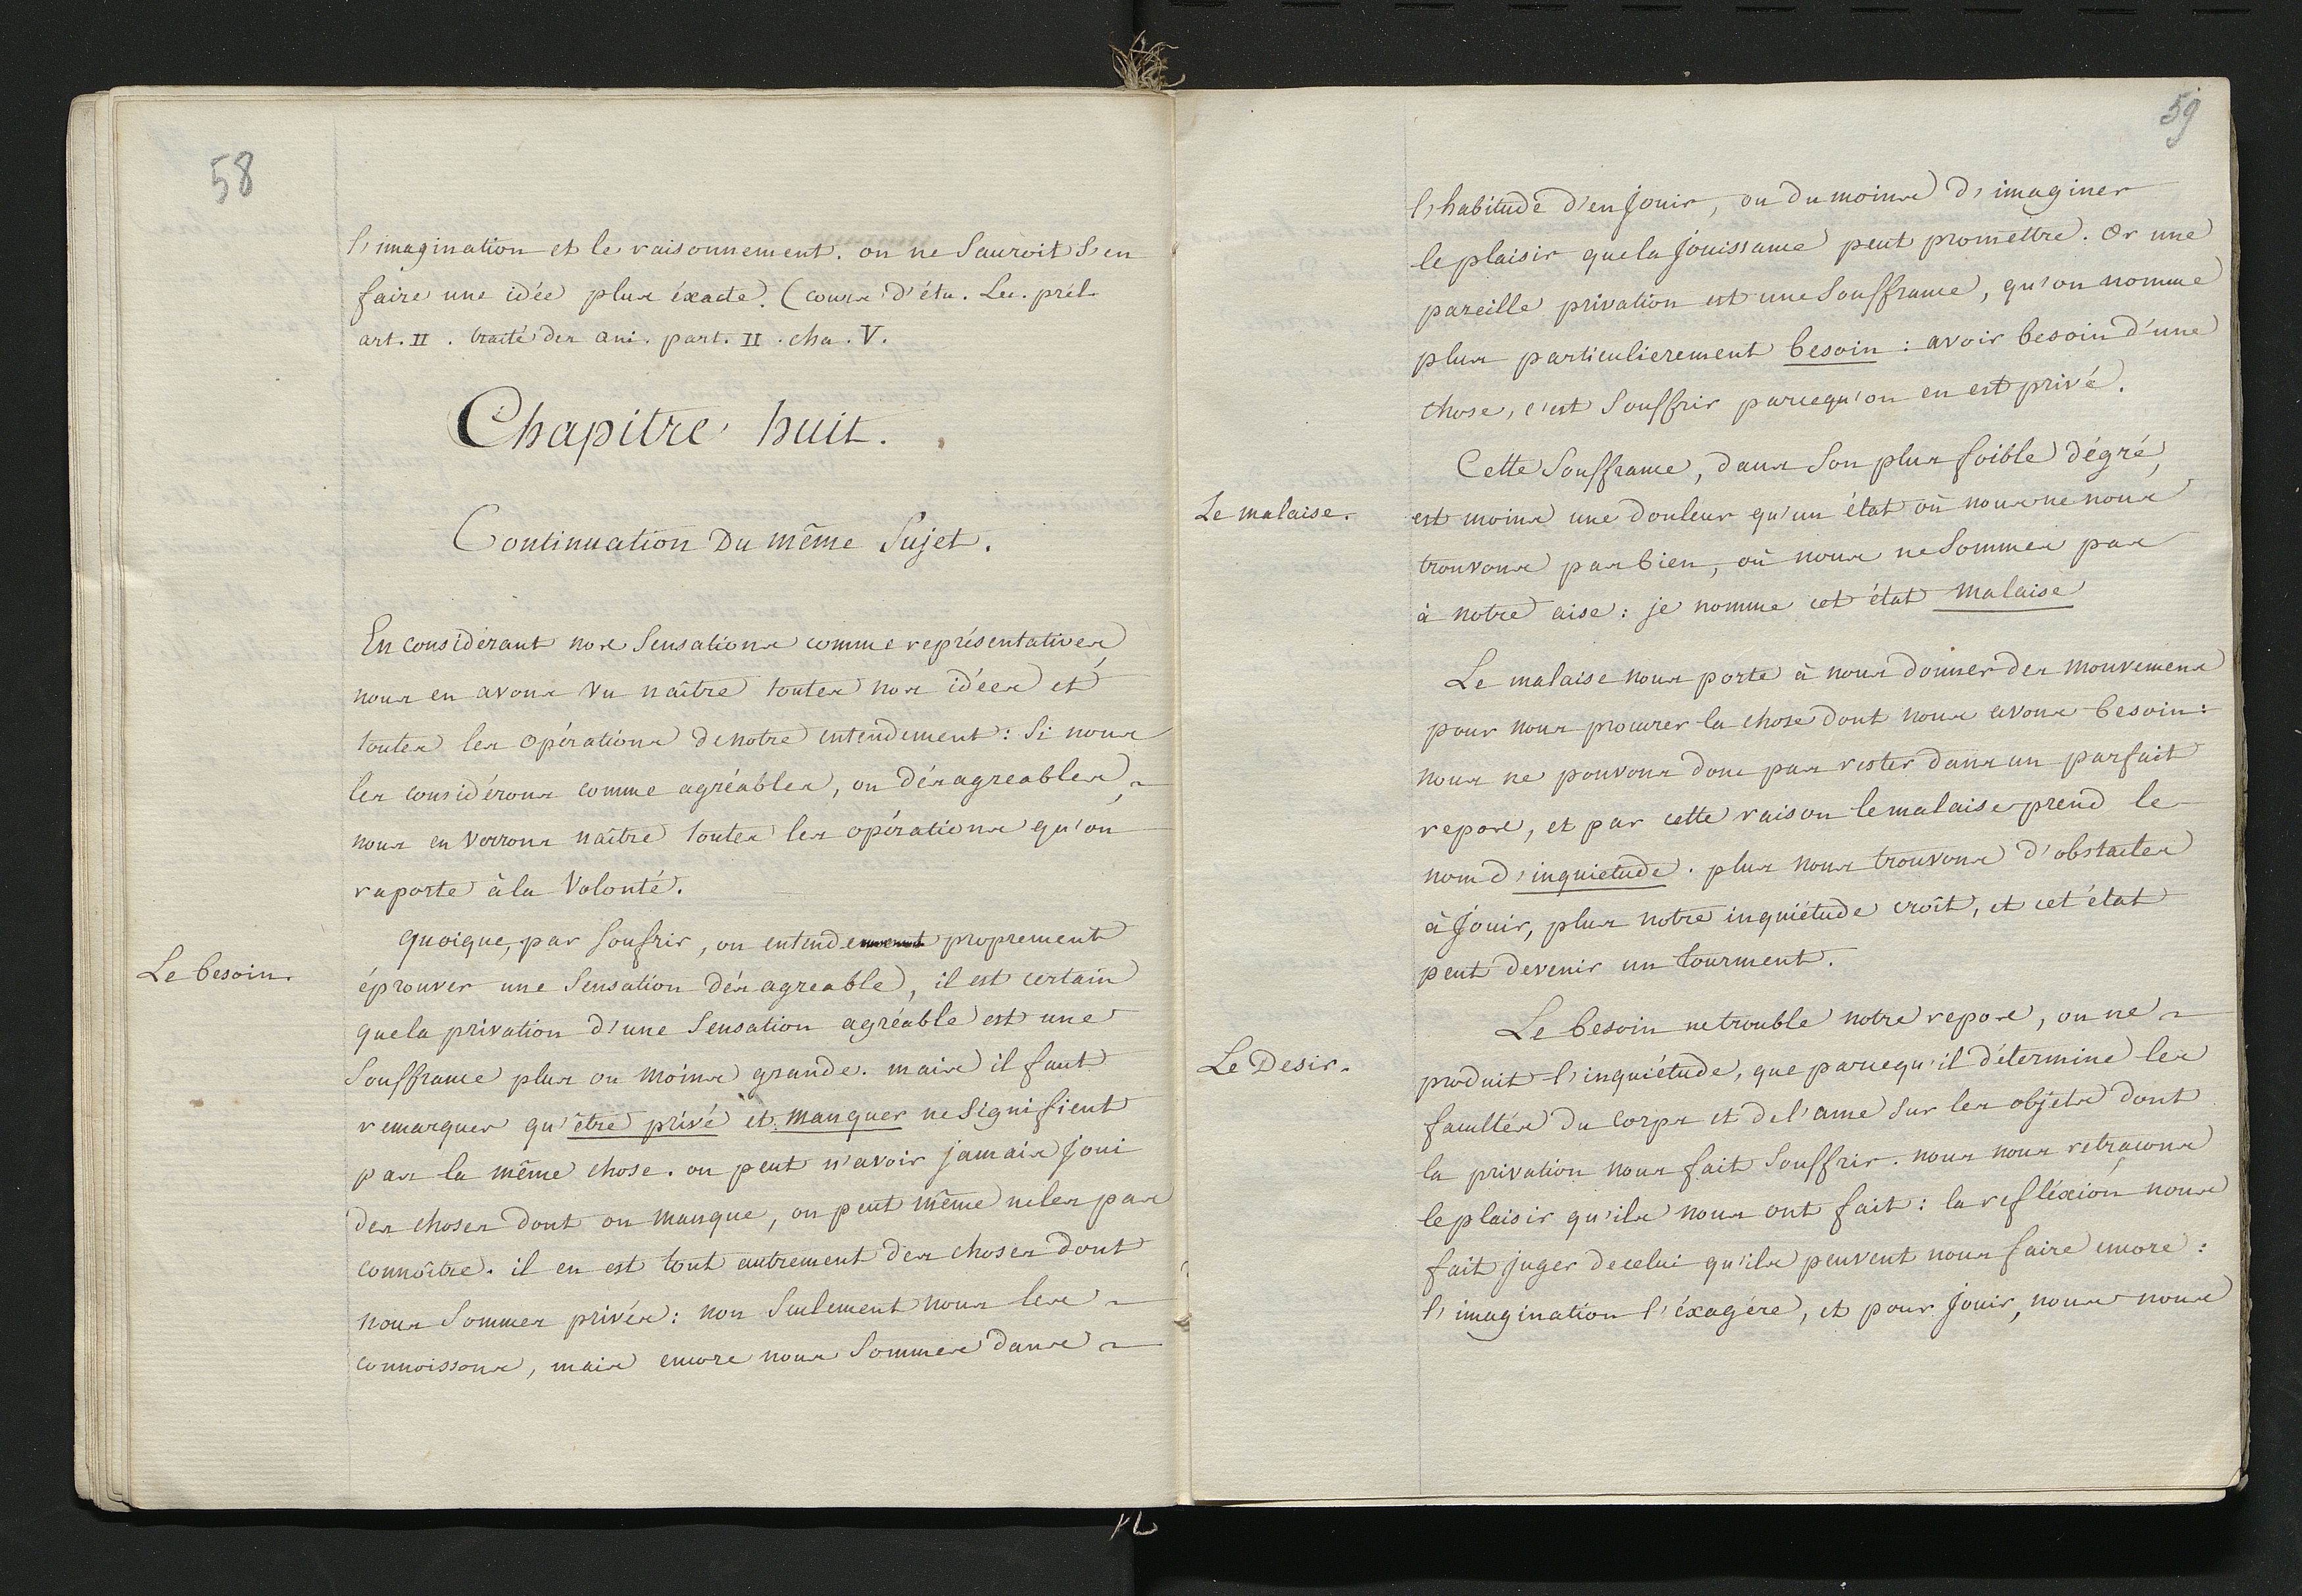 58
l'imagination et le raisonnement. on ne Sauroit S'en
faire une idée plus éxacte. (cours d'étu. Lec. prél.
art. II. traité des ani. part. II. cha. V.
Chapitre huit.
Continuation Du même Sujet.
En considérant nos Sensations comme représentatives,
nous en avons vu naître toutes nos idées et
toutes les opérations de notre entendement : Si nous
les considérons comme agréables, ou désagreables,
nous en verrons naître toutes les opérations qu'on
raporte à la Volonté.
Le besoin.
quoique, par Soufrir, on entend proprement
éprouver une Sensation désagreable, il est certain
que la privation d'une Sensation agréable est une
Souffrance plus ou moins grande. mais il faut
remarquer qu'être privé et manquer ne Signifient
pas la même chose. on peut n'avoir jamais joui
des choses dont on manque, on peut même ne les pas
connoître. il en est tout autrement des choses dont
nous Sommes privés : non Seulement nous les
connoissons, mais encore nous Sommes dans
59
l'habitude d'en jouir, ou du moins d'imaginer
le plaisir que la jouissance peut promettre. Or une
pareille privation est une Souffrance, qu'on nomme
plus particulierement besoin : avoir besoin d'une
chose, c'est Souffrir parcequ'on en est privé.
Le malaise.
Cette Souffrance, dans Son plus foible dégré,
est moins une douleur qu'un état où nous ne nous
trouvons pas bien, où nous ne Sommes pas
à notre aise : je nomme cet état malaise
Le malaise nous porte à nous donner des mouvemens
pour nous procurer la chose dont nous avons besoin :
nous ne pouvons donc pas rester dans un parfait
repos, et par cette raison le malaise prend le
nom d'inquietude. plus nous trouvons d'obstacles
à jouir, plus notre inquiétude croît, et cet état
peut devenir un tourment.
Le Desir.
Le besoin ne trouble notre repos, ou ne
produit l'inquiétude, que parcequ'il détermine les
facultés du corps et de l'ame Sur les objets dont
la privation nous fait Souffrir. nous nous retraçons
le plaisir qu'ils nous ont fait : la refléxion nous
fait juger de celui qu'ils peuvent nous faire encore :
l'imagination l'éxagére, et pour jouir, nous nous